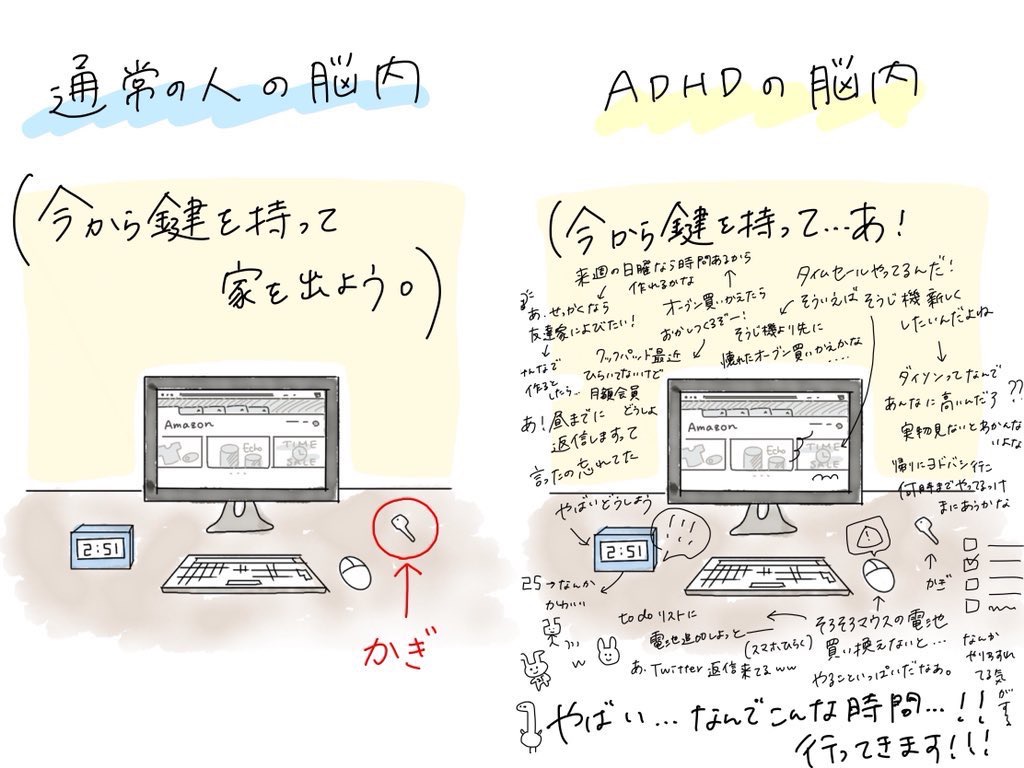 通常の人の脳内
(今から鍵を持って
家を出よう。)
Amazon
Echo
TIME
SALE
2:51
かぎ
ADHDの脳内
(今から鍵を持って…あ!
タイムセールやってるんだ!
そういえばそうじ機新しく
したいんだよね
ダイソンってなんで
あんなに高いんだろ??
実物見ないとあかんな
いよな
帰りにヨドバシ行こ
何時までやってるっけ
まにあうかな
そうじ機より先に
壊れたオーブン買いかえかな
....
オーブン買いかえたら
おかしつくるぞー!
来週の日曜なら時間あるから
作れるかな
あ、せっかくなら
友達家によびたい!
みんなで
作ると
したら…
クックパッド最近
ひらいてないけど
月額会員
どうしよ
あ!昼までに
返信しますって
言ったの忘れてた
やばいどうしよう
Amazon
Echo
TIME
SALE
!!!
2:51
25→なんか
かわいい
25
w
!
かぎ
そろそろマウスの電池
買い換えないと…
やることいっぱいだなあ。
to do リストに
電池追加しよっと
(スマホひらく)
あ、Twitter返信来てるww
なんか
やりわすれ
てる気
がする
やばい…なんでこんな時間…!!
行ってきます!!!